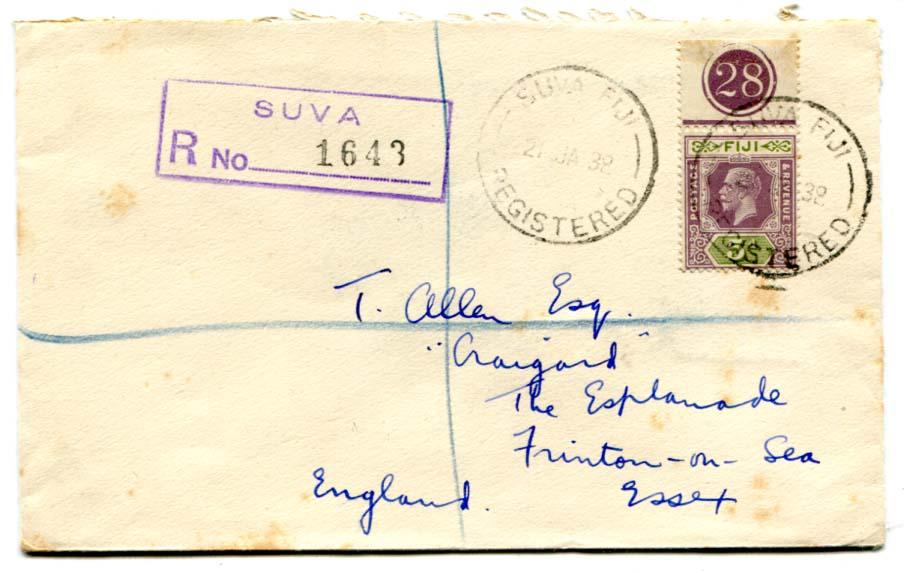 SUVA
R No. 1643
SUVA FIJI
21 JA 38
REGISTERED
28
FIJI
POSTAGE & REVENUE
5
SUVA FIJI
38
REGISTERED
T. Allen Esq.
"Craigard"
The Esplanade
Frinton-on-Sea
Essex
England.